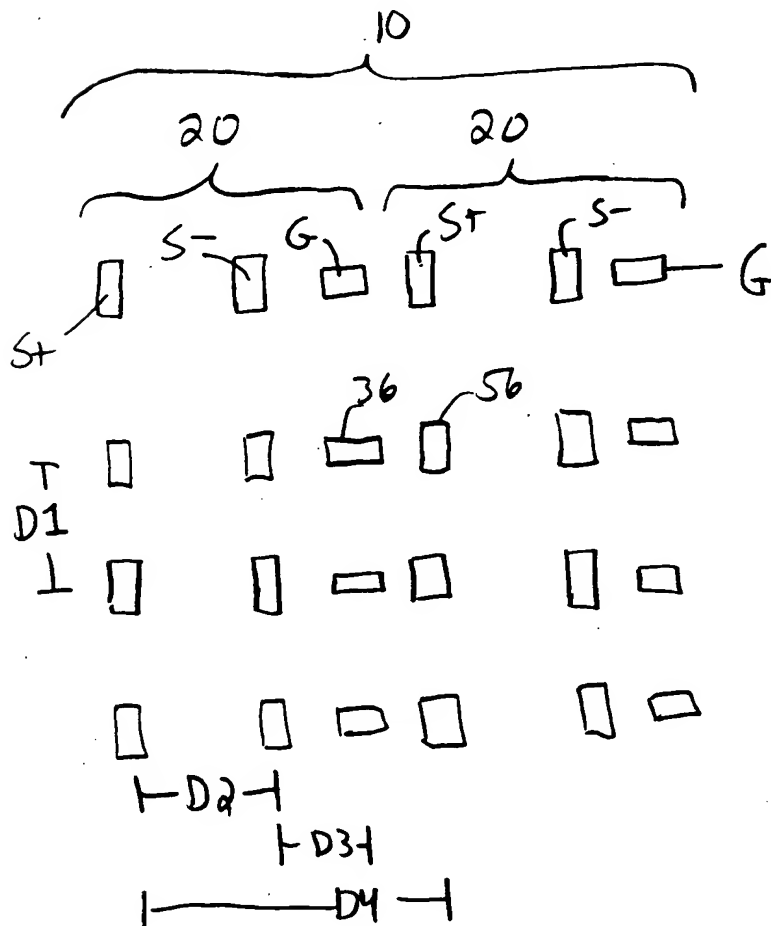 10
20 20
S- G S+ S- G
S+
36 56
D1
D2
D3
D4